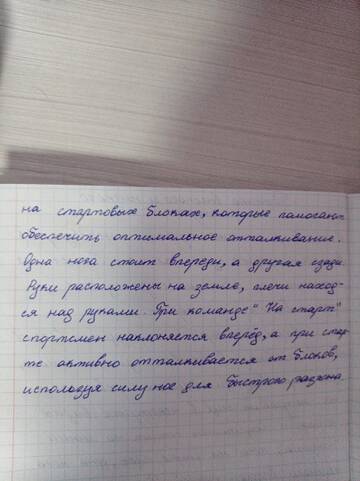 на стартовых блоках, которые помогают
обеспечить оптимальное отталкивание.
Одна нога стоит впереди, а другая сзади.
Руки расположены на земле, плечи наход-
ся над руками. При команде "На старт"
спортсмен наклоняется вперёд, а при стар-
те активно отталкивается от блоков,
используя силу ног для быстрого разгона.